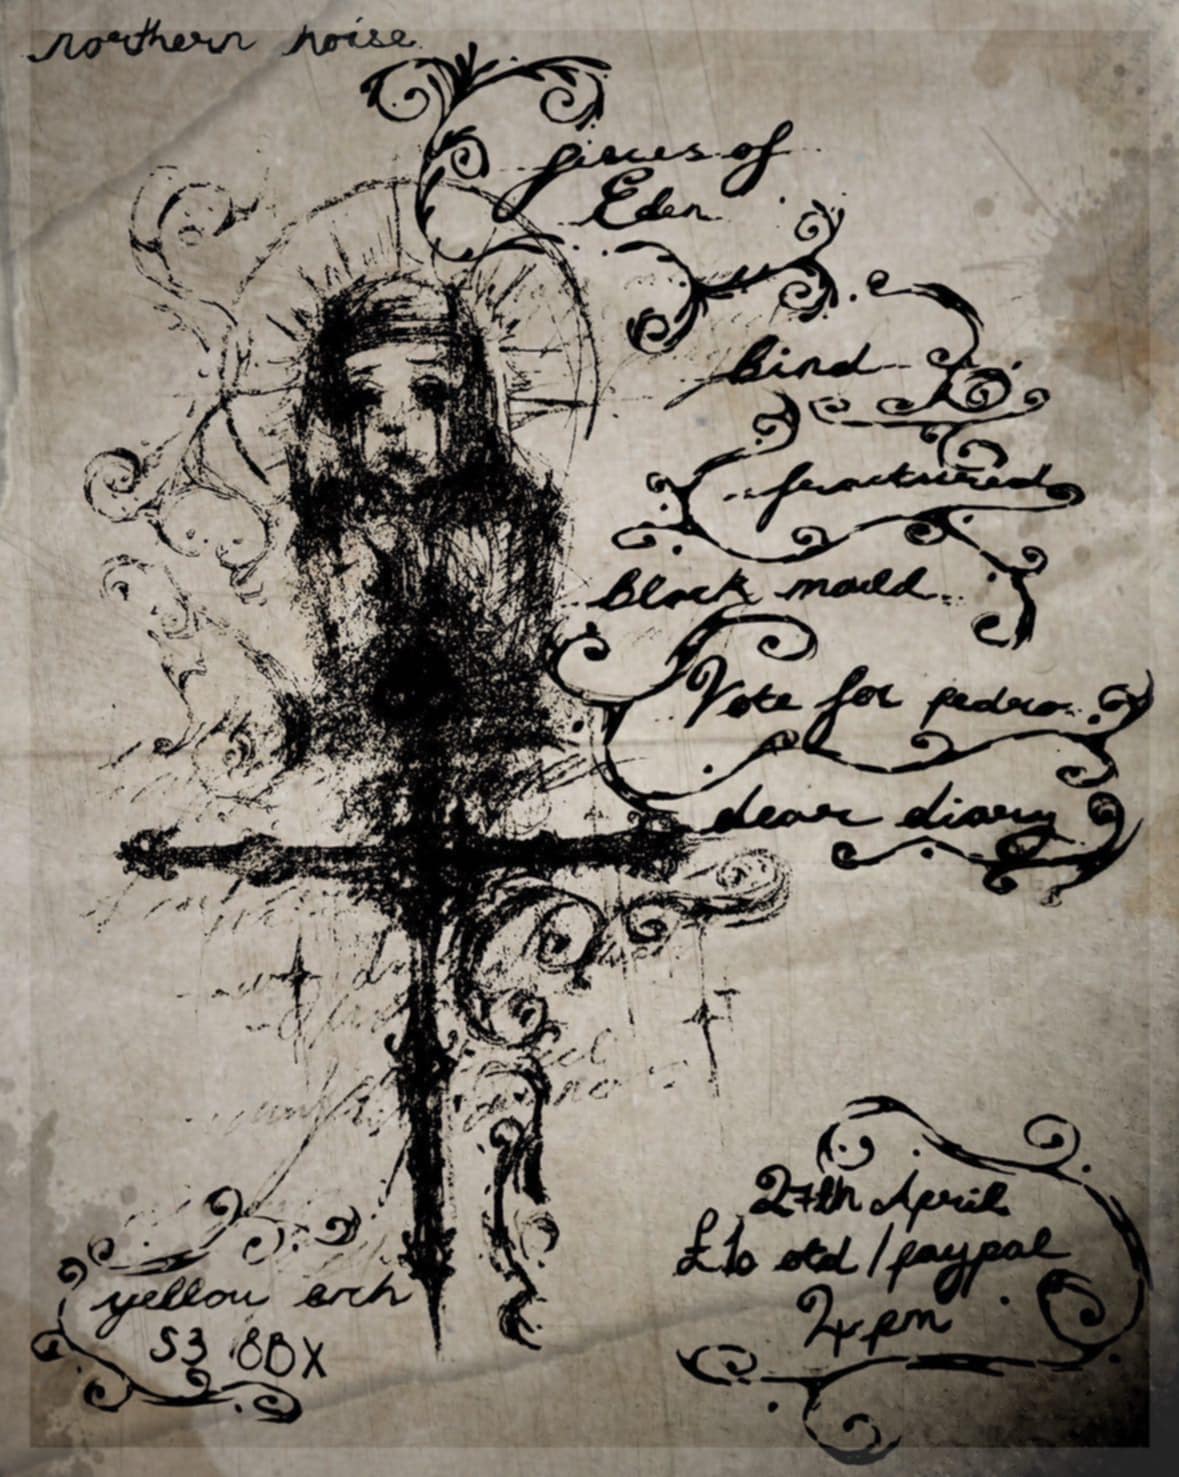 northern noise
pieces of
Eden
bind
fractured
Black mould
Vote for pedro
dear diary
27th April
£10 otd / paypal
4pm
yellow arch
S3 8BX